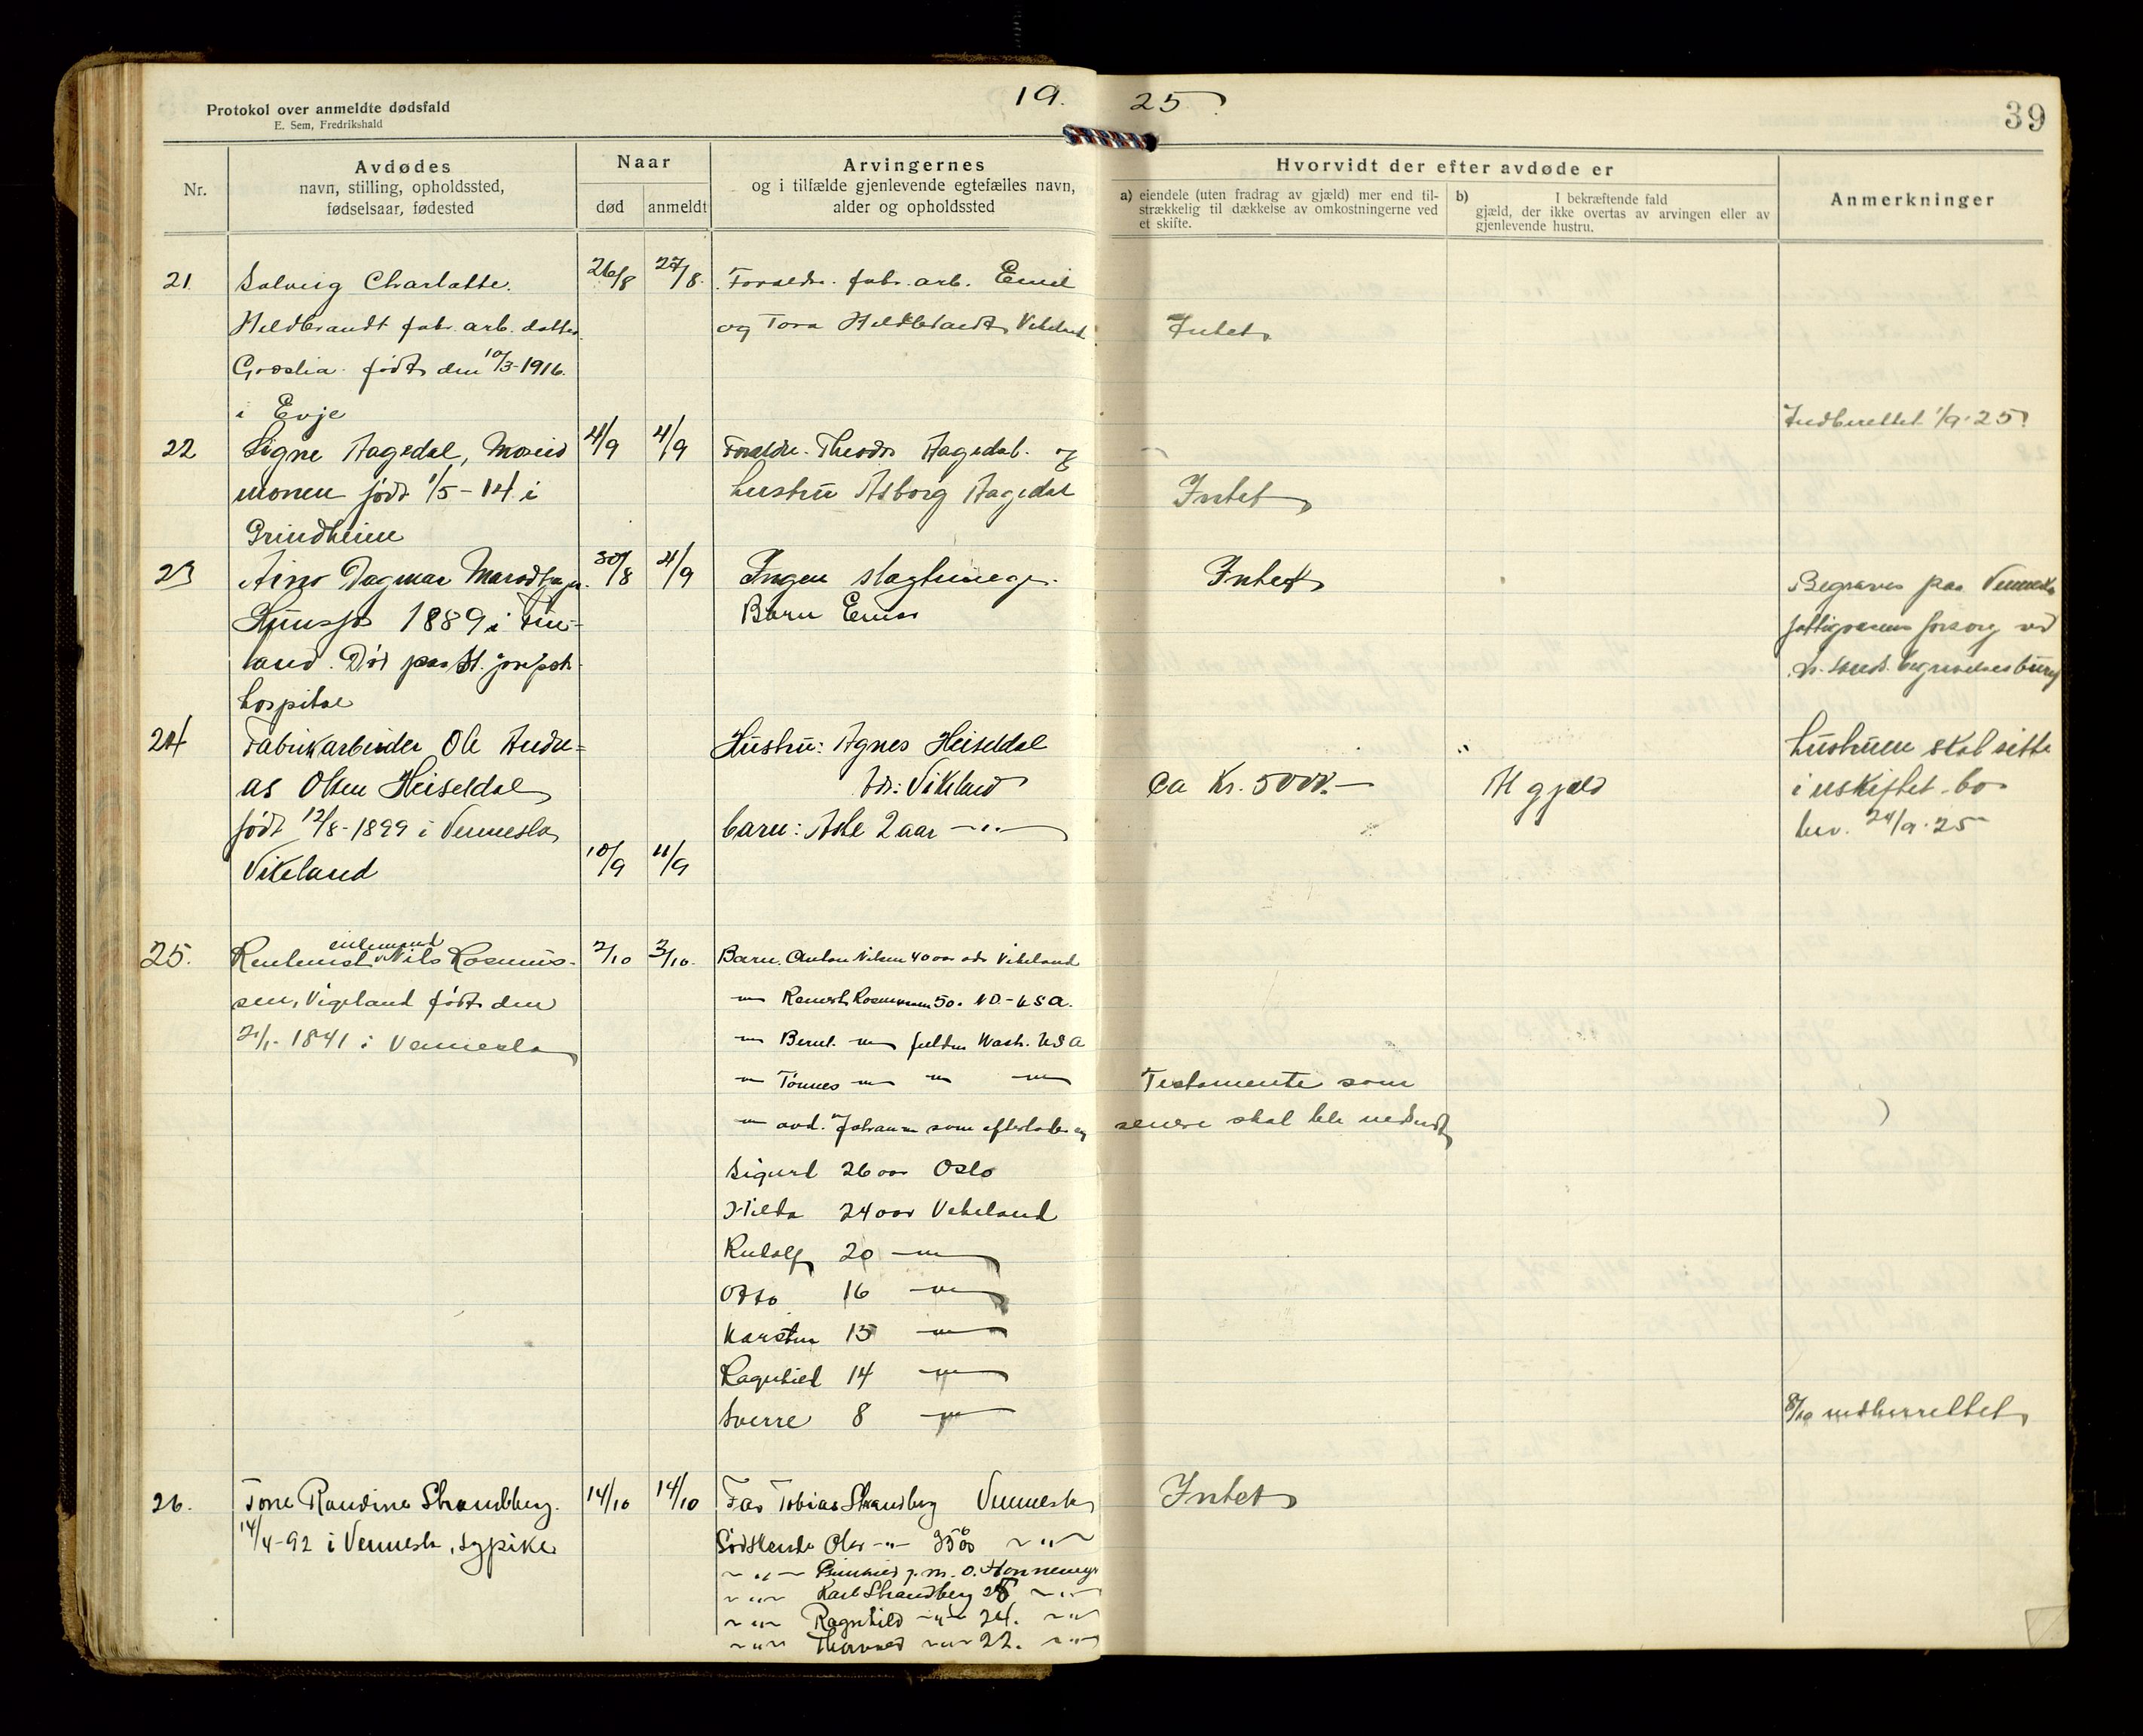 Protokol over anmeldte dødsfald
E. Sem, Fredrikshald
19. 25
39
Nr.
Avdødes
navn, stilling, opholdssted,
fødselsaar, fødested
Naar
død
anmeldt
Arvingernes
og i tilfælde gjenlevende egtefælles navn,
alder og opholdssted
Hvorvidt der efter avdøde er
a) eiendele (uten fradrag av gjæld) mer end til-
strækkelig til dækkelse av omkostningerne ved
et skifte.
b) I bekræftende fald
gjæld, der ikke overtas av arvingen eller av
gjenlevende hustru.
Anmerkninger
21.
Solveig Charlotte.
Hildbrandt fabr. arb. datter
født den 10/3-1916.
i Evje
26/8
27/8.
Foraeldre. fabr. arb. Emil
og Tora Hildbrandt Vikeland
Intet
Indberettet 1/9-25
22
Signe Aagedal, Moseid
monen født 1/5-14 i
Grindheim
4/9
4/9
Foraeldre. Theodor Aagedal. og
hustru Asborg Aagedal
Intet
23
Dagmar
1889 i Fin-
land. Død paa St. josephs
hospital
30/8
4/9
Ingen slagtninge.
Barn
Intet
Begraves paa Vennesla
fattigvesens forsorg ved
24
Fabrikarbeider Ole Andre-
as Olsen Heiseldal
født 12/8-1899 i Vennesla
Vikeland
10/9
11/9
Hustru: Agnes Heiseldal
Adr: Vikeland
barn: Asle 2 aar -"-
Ca Kr. 5000.-
"
gjæld
hustruen skal sitte
i uskiftet bo
bev. 24/9-25
25.
Rentenist enkemand Nils Rasmus-
sen, Vigeland født den
21/1-1841 i Vennesla
2/10
3/10.
Barn. Anton Nilsen 40 aar adr Vikeland
-"- Rasmussen 50. N.D.-U.S.A.
-"- Bernt. -"- Wash. U.S.A
-"- Tønnes -"- -"- -"-
-"- avd. Johanne som efterlader sig
Sigurd 26 aar Oslo
Hilda 24 aar Vikeland
Rudolf 20 -"-
Otto 16 -"-
Karsten 15 -"-
Ragnhild 14 -"-
Sverre 8 -"-
Testamente som
senere skal bli indsendt
8/10 indberettet
26.
Tone Randine Strandberg.
14/4-92 i Vennesla, sypike
14/10
14/10
Far Tobias Strandberg Vennesla
Sødskende Olav -"- -"-
-"- g. m. O. Honnemyr
-"- Karl Strandberg 28 -"-
-"- Ragnhild -"- 24. -"-
-"- -"- 22. -"-
Intet